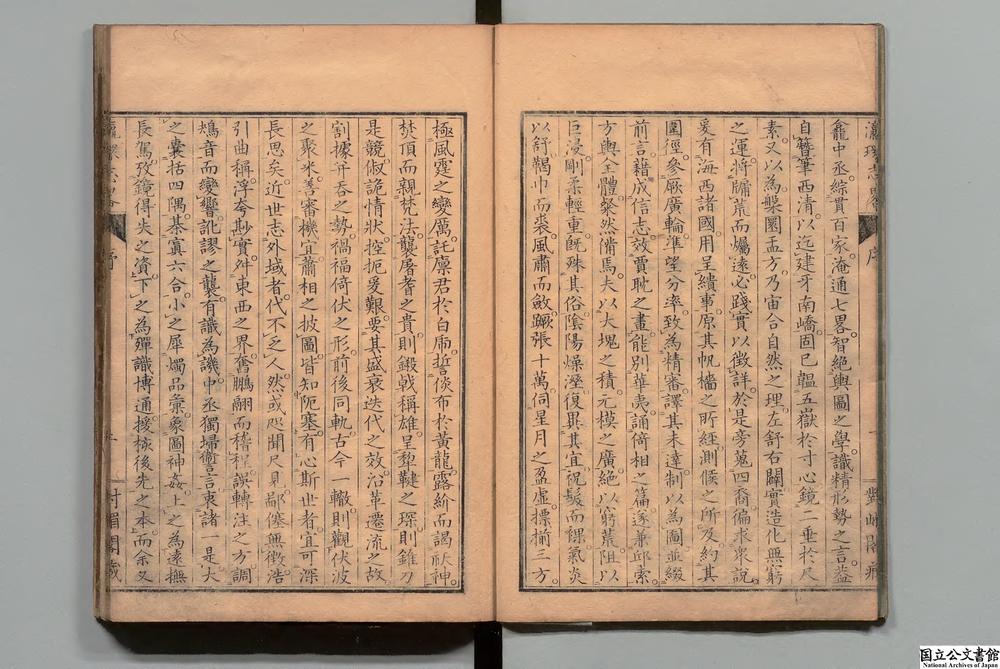 龕中丞綜貫百家淹通七畧智絶輿圖之學識精形勢之言蓋
自簪筆西清以迄建牙南嶠固已韞五嶽於寸心鏡二垂於尺
素又以為槃圜盂方乃宙合自然之理左舒右闢實造化無窮
之運將牖荒而矚遠必踐實以徴詳於是旁蒐四裔徧求衆說
爰有海西諸國用呈繢事原其帆檣之所經測候之所及約其
圍徑參厥廣輪準望分率致為精審譯其未達制以為圖並綴
前言藉成信志效賈耽之畫能別華夷誦倚相之篇遂兼邱索
方輿全體粲然備焉夫以大塊之積元模之廣絶以窮荒阻以
巨浸剛柔輕重旣殊其俗陰陽燥溼復異其宜祝髮而裸氣炎
以舒鞨巾而裘風肅而斂蹶張十萬伺星月之盈虛摽揃三方
極風霆之變厲託廩君於白虎誓倓布於黃龍露紒而謁祆神
焚頂而親梵法襲屠耆之貴則鍛戟稱雄呈犂靬之琛則錐刀
是競俶詭情狀控扼爰艱要其盛衰迭代之效沿革遷流之故
割據幷吞之勢禍福倚伏之形前後同軌古今一轍則觀伏波
之聚米善審機宜蕭相之披圖皆知阨塞有心斯世者宜可深
長思矣近世志外域者代不乏人然或咫聞尺見鄙塞無徴浩
引曲稱浮夸尠實舛東西之界奮鵬翩而稽程誤轉注之方調
鴂音而變響訛謬之襲有識為譏中丞獨埽讏言衷諸一是大
之囊括四隅綦寘六合小之犀燭品彙象圖神姦上之為遠撫
長駕攷鏡得失之資下之為殫識博通援核後先之本而余又